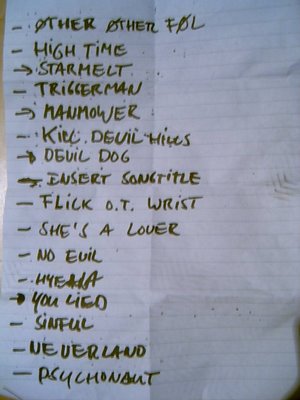 – ØTHER ØTHER FØL
– HIGH TIME
→ STARMELT
– TRIGGERMAN
→ MANMOWER
– KILL DEVIL HILLS
→ DEVIL DOG
→ INSERT SONGTITLE
– FLICK O.T. WRIST
– SHE'S A LOVER
– NO EVIL
– HYENA
→ YOU LIED
– SINFUL
– NEVERLAND
– PSYCHONAUT